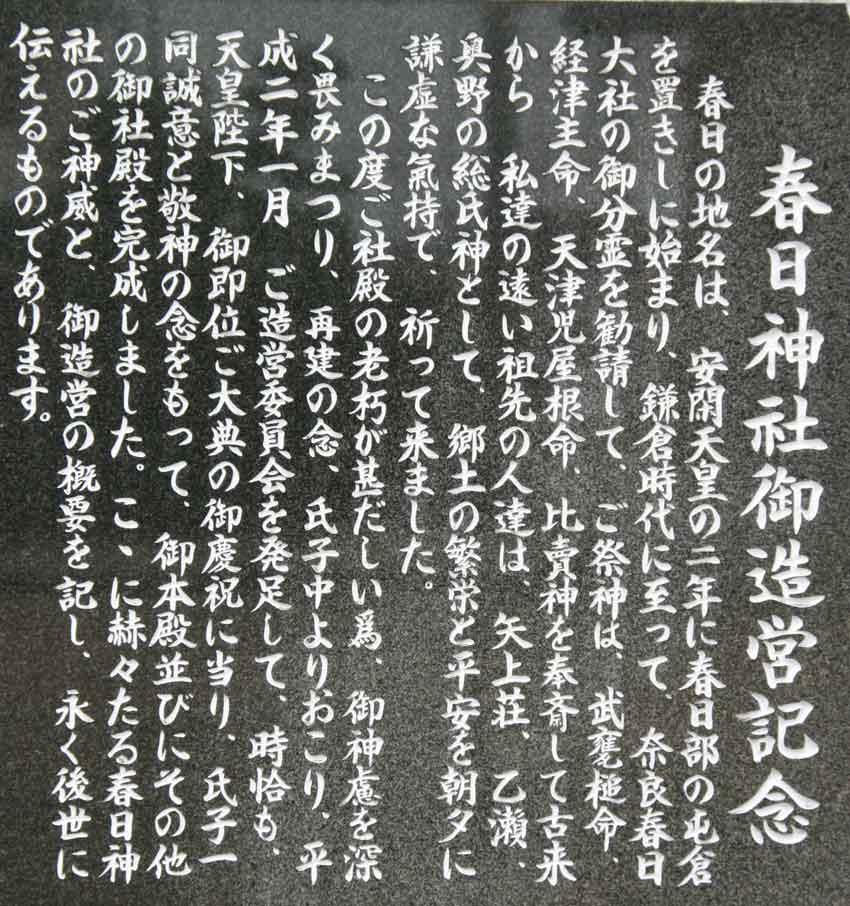 春日神社御造営記念
春日の地名は、安閑天皇の二年に春日部の屯倉
を置きしに始まり、鎌倉時代に至って、奈良春日
大社の御分霊を勧請して、ご祭神は、武甕槌命、
経津主命、天津児屋根命、比賣神を奉斎して古来
から 私達の遠い祖先の人達は、矢上荘、乙瀬、
奥野の総氏神として、郷土の繁栄と平安を朝夕に
謙虚な氣持で、祈って来ました。
この度ご社殿の老朽が甚だしい爲、御神慮を深
く畏みまつり、再建の念、氏子中よりおこり、平
成二年一月 ご造営委員会を発足して、時恰も、
天皇陛下、御即位ご大典の御慶祝に当り、氏子一
同誠意と敬神の念をもって、御本殿並びにその他
の御社殿を完成しました。こゝに赫々たる春日神
社のご神威と、御造営の概要を記し、永く後世に
伝えるものであります。